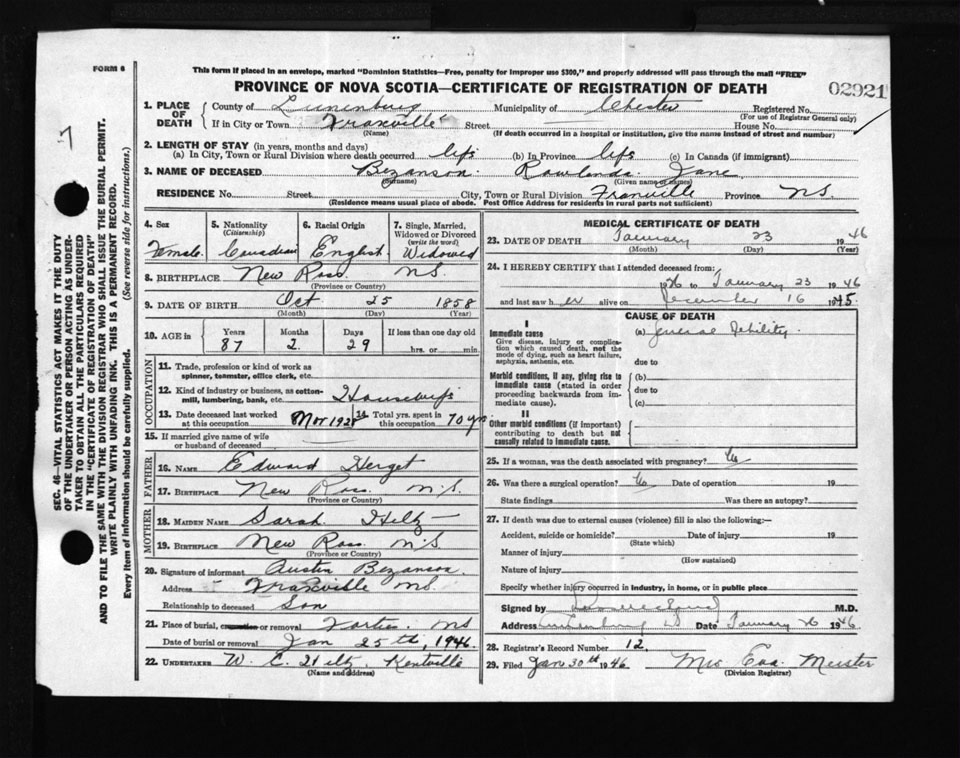 FORM 6
This form if placed in an envelope, marked "Dominion Statistics—Free, penalty for improper use $300," and properly addressed will pass through the mail "FREE"
PROVINCE OF NOVA SCOTIA—CERTIFICATE OF REGISTRATION OF DEATH
02921
1. PLACE OF DEATH County of Lunenburg Municipality of Chester Registered No.
(For use of Registrar General only)
If in City or Town Fraxville Street House No.
(Name) (If death occurred in a hospital or institution, give the name instead of street and number)
2. LENGTH OF STAY (in years, months and days)
(a) In City, Town or Rural Division where death occurred life (b) In Province life (c) In Canada (if immigrant)
3. NAME OF DECEASED Bezanson Rowlenda Jane
(Surname) (Given name or names)
RESIDENCE No. Street City, Town or Rural Division Fraxville Province N.S.
(Residence means usual place of abode. Post Office Address for residents in rural parts not sufficient)
4. Sex 5. Nationality (Citizenship) 6. Racial Origin 7. Single, Married, Widowed or Divorced (write the word)
Female Canadian English Widowed
8. BIRTHPLACE New Ross N.S.
(Province or Country)
9. DATE OF BIRTH Oct 25 1858
(Month) (Day) (Year)
10. AGE in Years Months Days If less than one day old
87 2 29 hrs. or min.
OCCUPATION
11. Trade, profession or kind of work as spinner, teamster, office clerk, etc.
12. Kind of industry or business, as cotton-mill, lumbering, bank, etc. Housewife
13. Date deceased last worked at this occupation Nov 1928 14. Total yrs. spent in this occupation 70 yrs
15. If married give name of wife or husband of deceased
FATHER
16. NAME Edward Herget
17. BIRTHPLACE New Ross N.S.
(Province or Country)
MOTHER
18. MAIDEN NAME Sarah Hiltz
19. BIRTHPLACE New Ross N.S.
(Province or Country)
20. Signature of informant Austin Bezanson
Address Fraxville N.S.
Relationship to deceased Son
21. Place of burial, cremation or removal N.S.
Date of burial or removal Jan 25th, 1946
22. UNDERTAKER W. C. Hiltz Kentville
(Name and address)
MEDICAL CERTIFICATE OF DEATH
23. DATE OF DEATH January 23 1946
(Month) (Day) (Year)
24. I HEREBY CERTIFY that I attended deceased from:
to January 23 1946
and last saw her alive on December 16 1945
CAUSE OF DEATH
I
Immediate cause
Give disease, injury or complication which caused death, not the mode of dying, such as heart failure, asphyxia, asthenia, etc.
(a) General Debility
due to
Morbid conditions, if any, giving rise to immediate cause (stated in order proceeding backwards from immediate cause).
(b)
due to
(c)
II
Other morbid conditions (if important) contributing to death but not causally related to immediate cause.
25. If a woman, was the death associated with pregnancy? No
26. Was there a surgical operation? No Date of operation 19
State findings Was there an autopsy?
27. If death was due to external causes (violence) fill in also the following:—
Accident, suicide or homicide? Date of injury 19
(State which)
Manner of injury
(How sustained)
Nature of injury
Specify whether injury occurred in industry, in home, or in public place
Signed by M.D.
Address Date January 26 1946
28. Registrar's Record Number 12
29. Filed Jan 30th 1946 Mrs Eva Meister
(Division Registrar)
SEC. 46—VITAL STATISTICS ACT MAKES IT THE DUTY
OF THE UNDERTAKER OR PERSON ACTING AS UNDER-
TAKER TO OBTAIN ALL THE PARTICULARS REQUIRED
IN THE "CERTIFICATE OF REGISTRATION OF DEATH"
AND TO FILE THE SAME WITH THE DIVISION REGISTRAR WHO SHALL ISSUE THE BURIAL PERMIT.
WRITE PLAINLY WITH UNFADING INK. THIS IS A PERMANENT RECORD.
Every item of information should be carefully supplied. (See reverse side for instructions.)